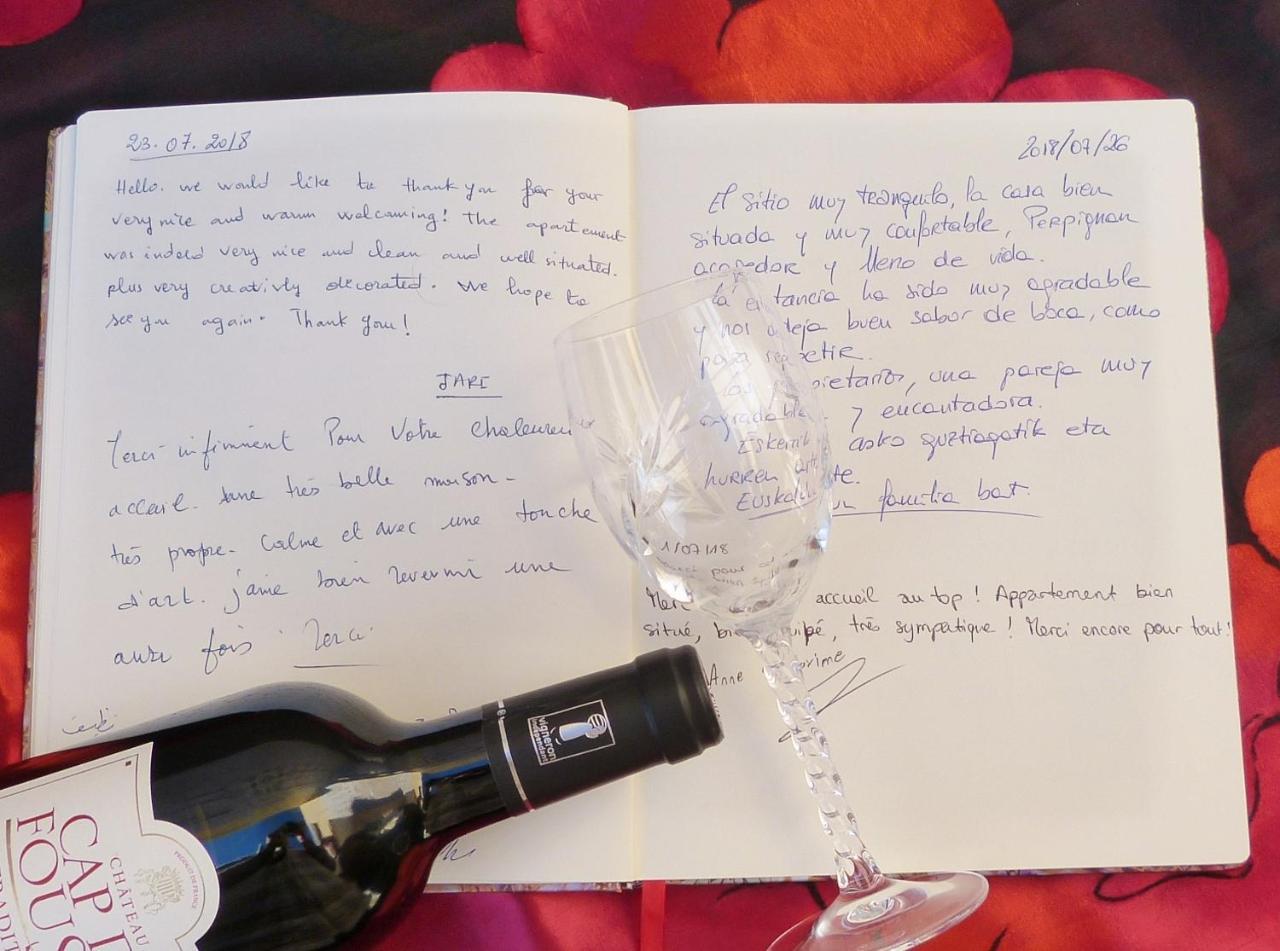 23.07.2018
Hello. we would like to thank you for your
very nice and warm welcoming! The apartement
was indeed very nice and clean and well situated.
plus very creativly decorated. We hope to
see you again. Thank you!
JARI
Merci infiniment Pour Votre chaleureux
acceil. Une très belle maison -
très propre. Calme et avec une touche
d'art. j'aime bien revenir une
autre fois. Merci
2018/07/26
El sitio muy tranquilo, la casa bien
situada y muy confortable, Perpignan
acogedor y lleno de vida.
La estancia ha sido muy agradable
y nos deja buen sabor de boca, como
para repetir.
Los propietarios, una pareja muy
agradable y encantadora.
Eskerrik asko guztiagatik eta
hurren arte.
Euskal familia bat.
1/07/18
Merci accueil au top ! Appartement bien
situé, bien équipé, très sympatique ! Merci encore pour tout!
Anne
vigneron
indépendant
CHÂTEAU
CAP
FOUS
TRADIT
PRODUCT OF FRANCE